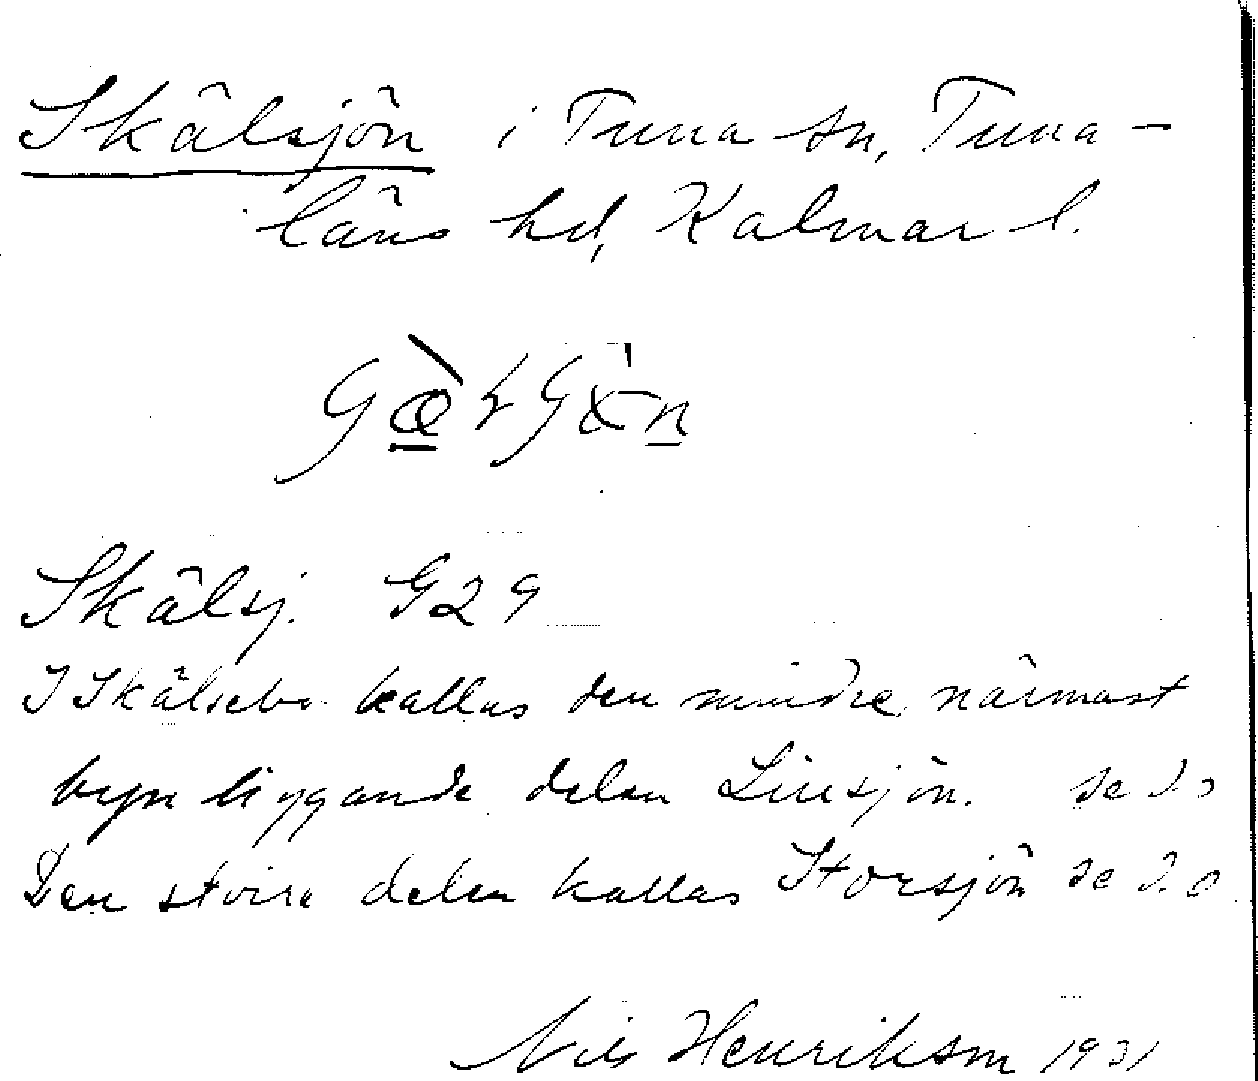 Skälsjön i Tuna sn, Tuna-
läns hd, Kalmar l.
Skälsj. G29
I Skälsebo kallas den mindre närmast
byn liggande delen Linsjön. se d.o
Den större delen kallas Storsjön se d.o.
Nils Henrikson 1931